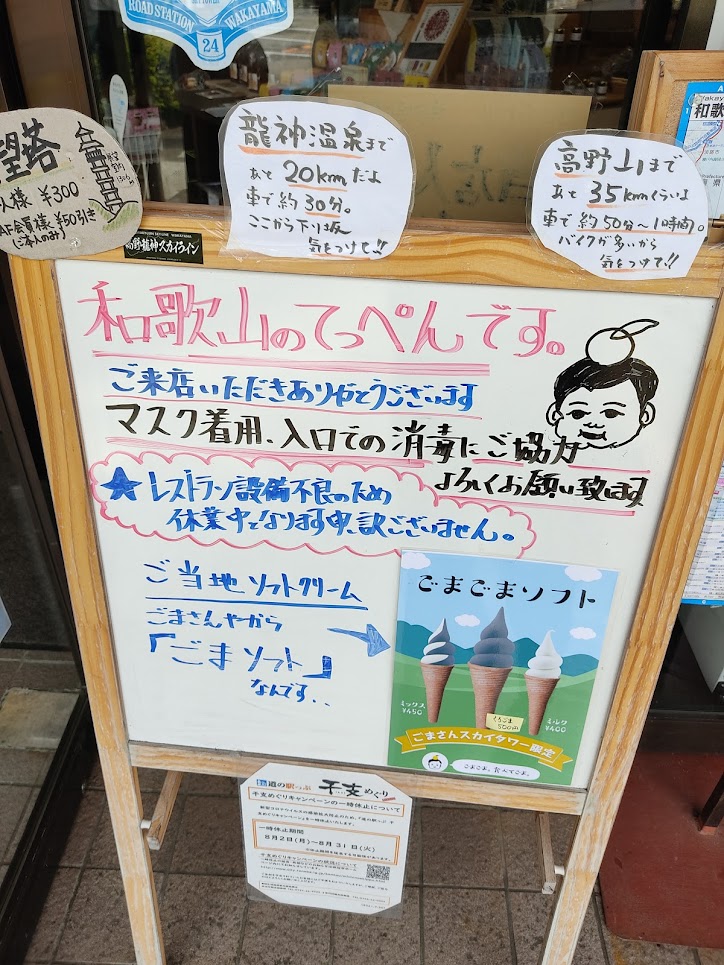 ROAD STATION WAKAYAMA
24
望塔
人様 ¥300
AF会員様 ¥50引き
(ご本人のみ)
龍神温泉まで
あと 20kmだよ
車で約30分。
ここから下り坂
気をつけて!!
高野山まで
あと 35kmくらいよ
車で約50分〜1時間。
バイクが多いから
気をつけて!!
和歌
高野龍神スカイライン
和歌山のてっぺんです。
ご来店いただきありがとうございます
マスク着用、入口での消毒にご協力
よろしくお願い致します
★レストラン設備不良のため
休業中となります申し訳ございません。
ご当地ソフトクリーム
ごまさんやから
「ごまソフト」
なんです..
ごまごまソフト
ミックス
¥450
くろごま
500円
ミルク
¥400
ごまさんスカイタワー限定
ごまごま、食べてごま。
道の駅っぷ 干支めぐり
干支めぐりキャンペーンの一時休止について
一時休止期間
8月2日(月)~8月31日(火)